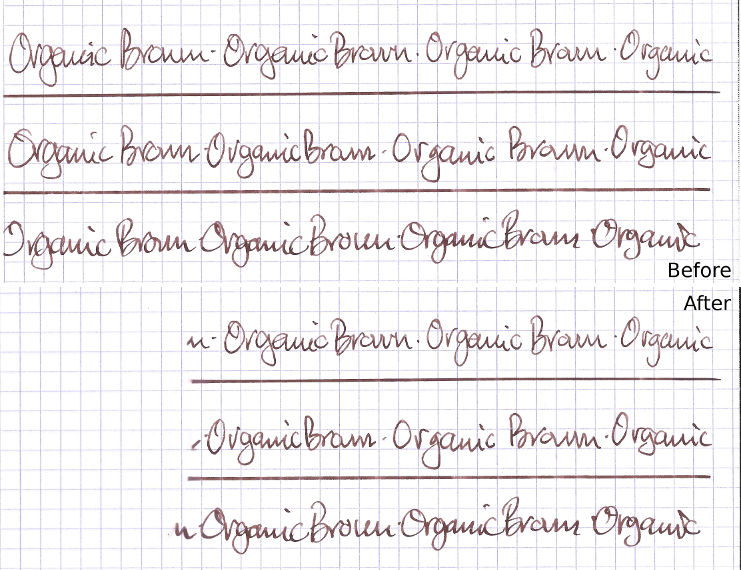 Organic Brown · Organic Brown · Organic Brown · Organic
Organic Brown · Organic Brown · Organic Brown · Organic
Organic Brown · Organic Brown · Organic Brown · Organic
Before
After
n · Organic Brown · Organic Brown · Organic
· Organic Brown · Organic Brown · Organic
n · Organic Brown · Organic Brown · Organic